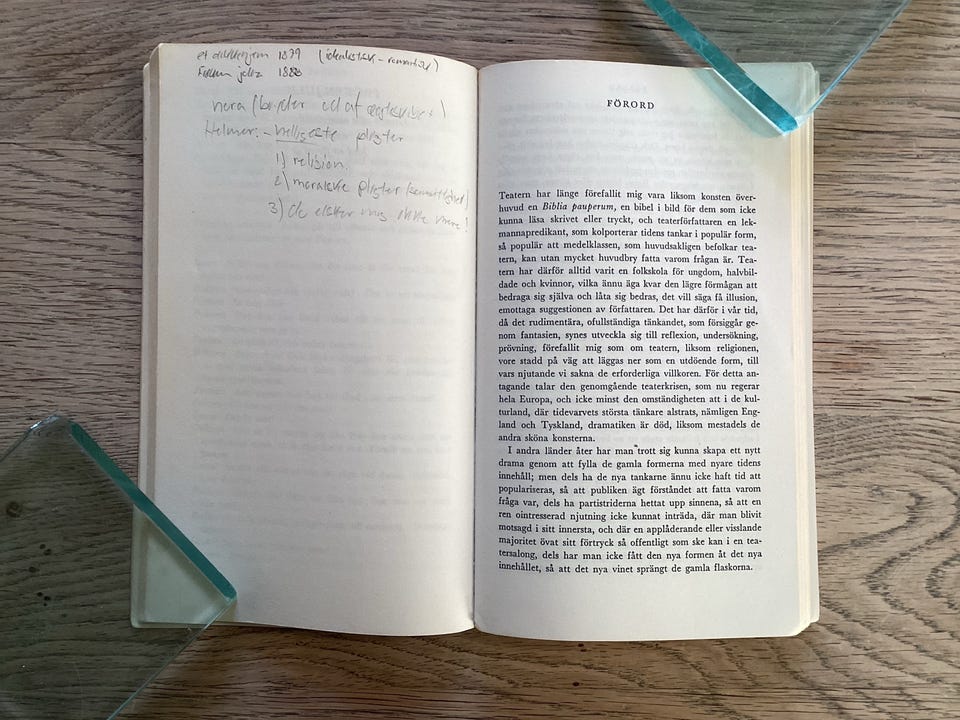 et dukkehjem 1879 (idealistisk - romantisk)
Frøken Julie 1888
nora (bryder ud af
Helmer: - helligeste pligter
1) religion.
2) moralske pligter
3) du elsker mig ikke mere!
FÖRORD
Teatern har länge förefallit mig vara liksom konsten över-
huvud en Biblia pauperum, en bibel i bild för dem som icke
kunna läsa skrivet eller tryckt, och teaterförfattaren en lek-
mannapredikant, som kolporterar tidens tankar i populär form,
så populär att medelklassen, som huvudsakligen befolkar tea-
tern, kan utan mycket huvudbry fatta varom frågan är. Tea-
tern har därför alltid varit en folkskola för ungdom, halvbil-
dade och kvinnor, vilka ännu äga kvar den lägre förmågan att
bedraga sig själva och låta sig bedras, det vill säga få illusion,
emottaga suggestionen av författaren. Det har därför i vår tid,
då det rudimentära, ofullständiga tänkandet, som försiggår ge-
nom fantasien, synes utveckla sig till reflexion, undersökning,
prövning, förefallit mig som om teatern, liksom religionen,
vore stadd på väg att läggas ner som en utdöende form, till
vars njutande vi sakna de erforderliga villkoren. För detta an-
tagande talar den genomgående teaterkrisen, som nu regerar
hela Europa, och icke minst den omständigheten att i de kul-
turland, där tidevarvets största tänkare alstrats, nämligen Eng-
land och Tyskland, dramatiken är död, liksom mestadels de
andra sköna konsterna.
I andra länder åter har man trott sig kunna skapa ett nytt
drama genom att fylla de gamla formerna med nyare tidens
innehåll; men dels ha de nya tankarne ännu icke haft tid att
populariseras, så att publiken ägt förståndet att fatta varom
fråga var, dels ha partistriderna hettat upp sinnena, så att en
ren ointresserad njutning icke kunnat inträda, där man blivit
motsagd i sitt innersta, och där en applåderande eller visslande
majoritet övat sitt förtryck så offentligt som ske kan i en tea-
tersalong, dels har man icke fått den nya formen åt det nya
innehållet, så att det nya vinet sprängt de gamla flaskorna.